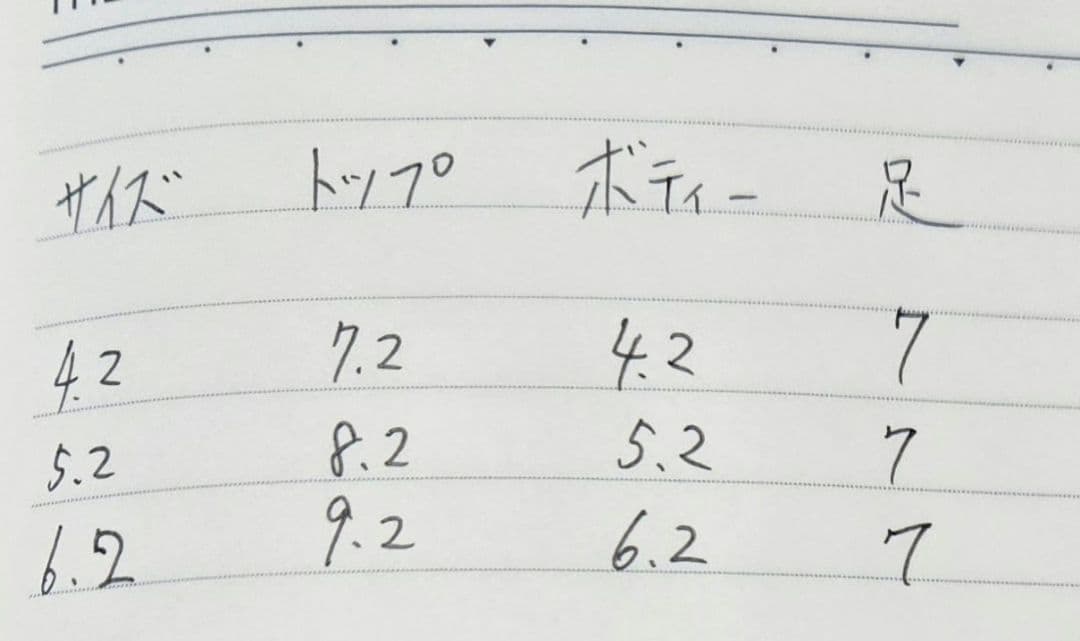 サイズ トップ ボディー 足
4.2 7.2 4.2 7
5.2 8.2 5.2 7
6.2 9.2 6.2 7